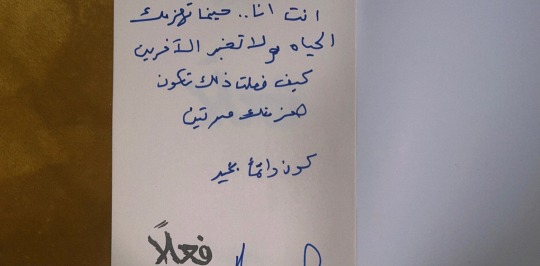 انت انا.. حينما تهزمك
الحياه ولا تخبر الآخرين
كيف فعلت ذلك تكون
هزمتك مرتين
كون دائماً بخير
فعلاً